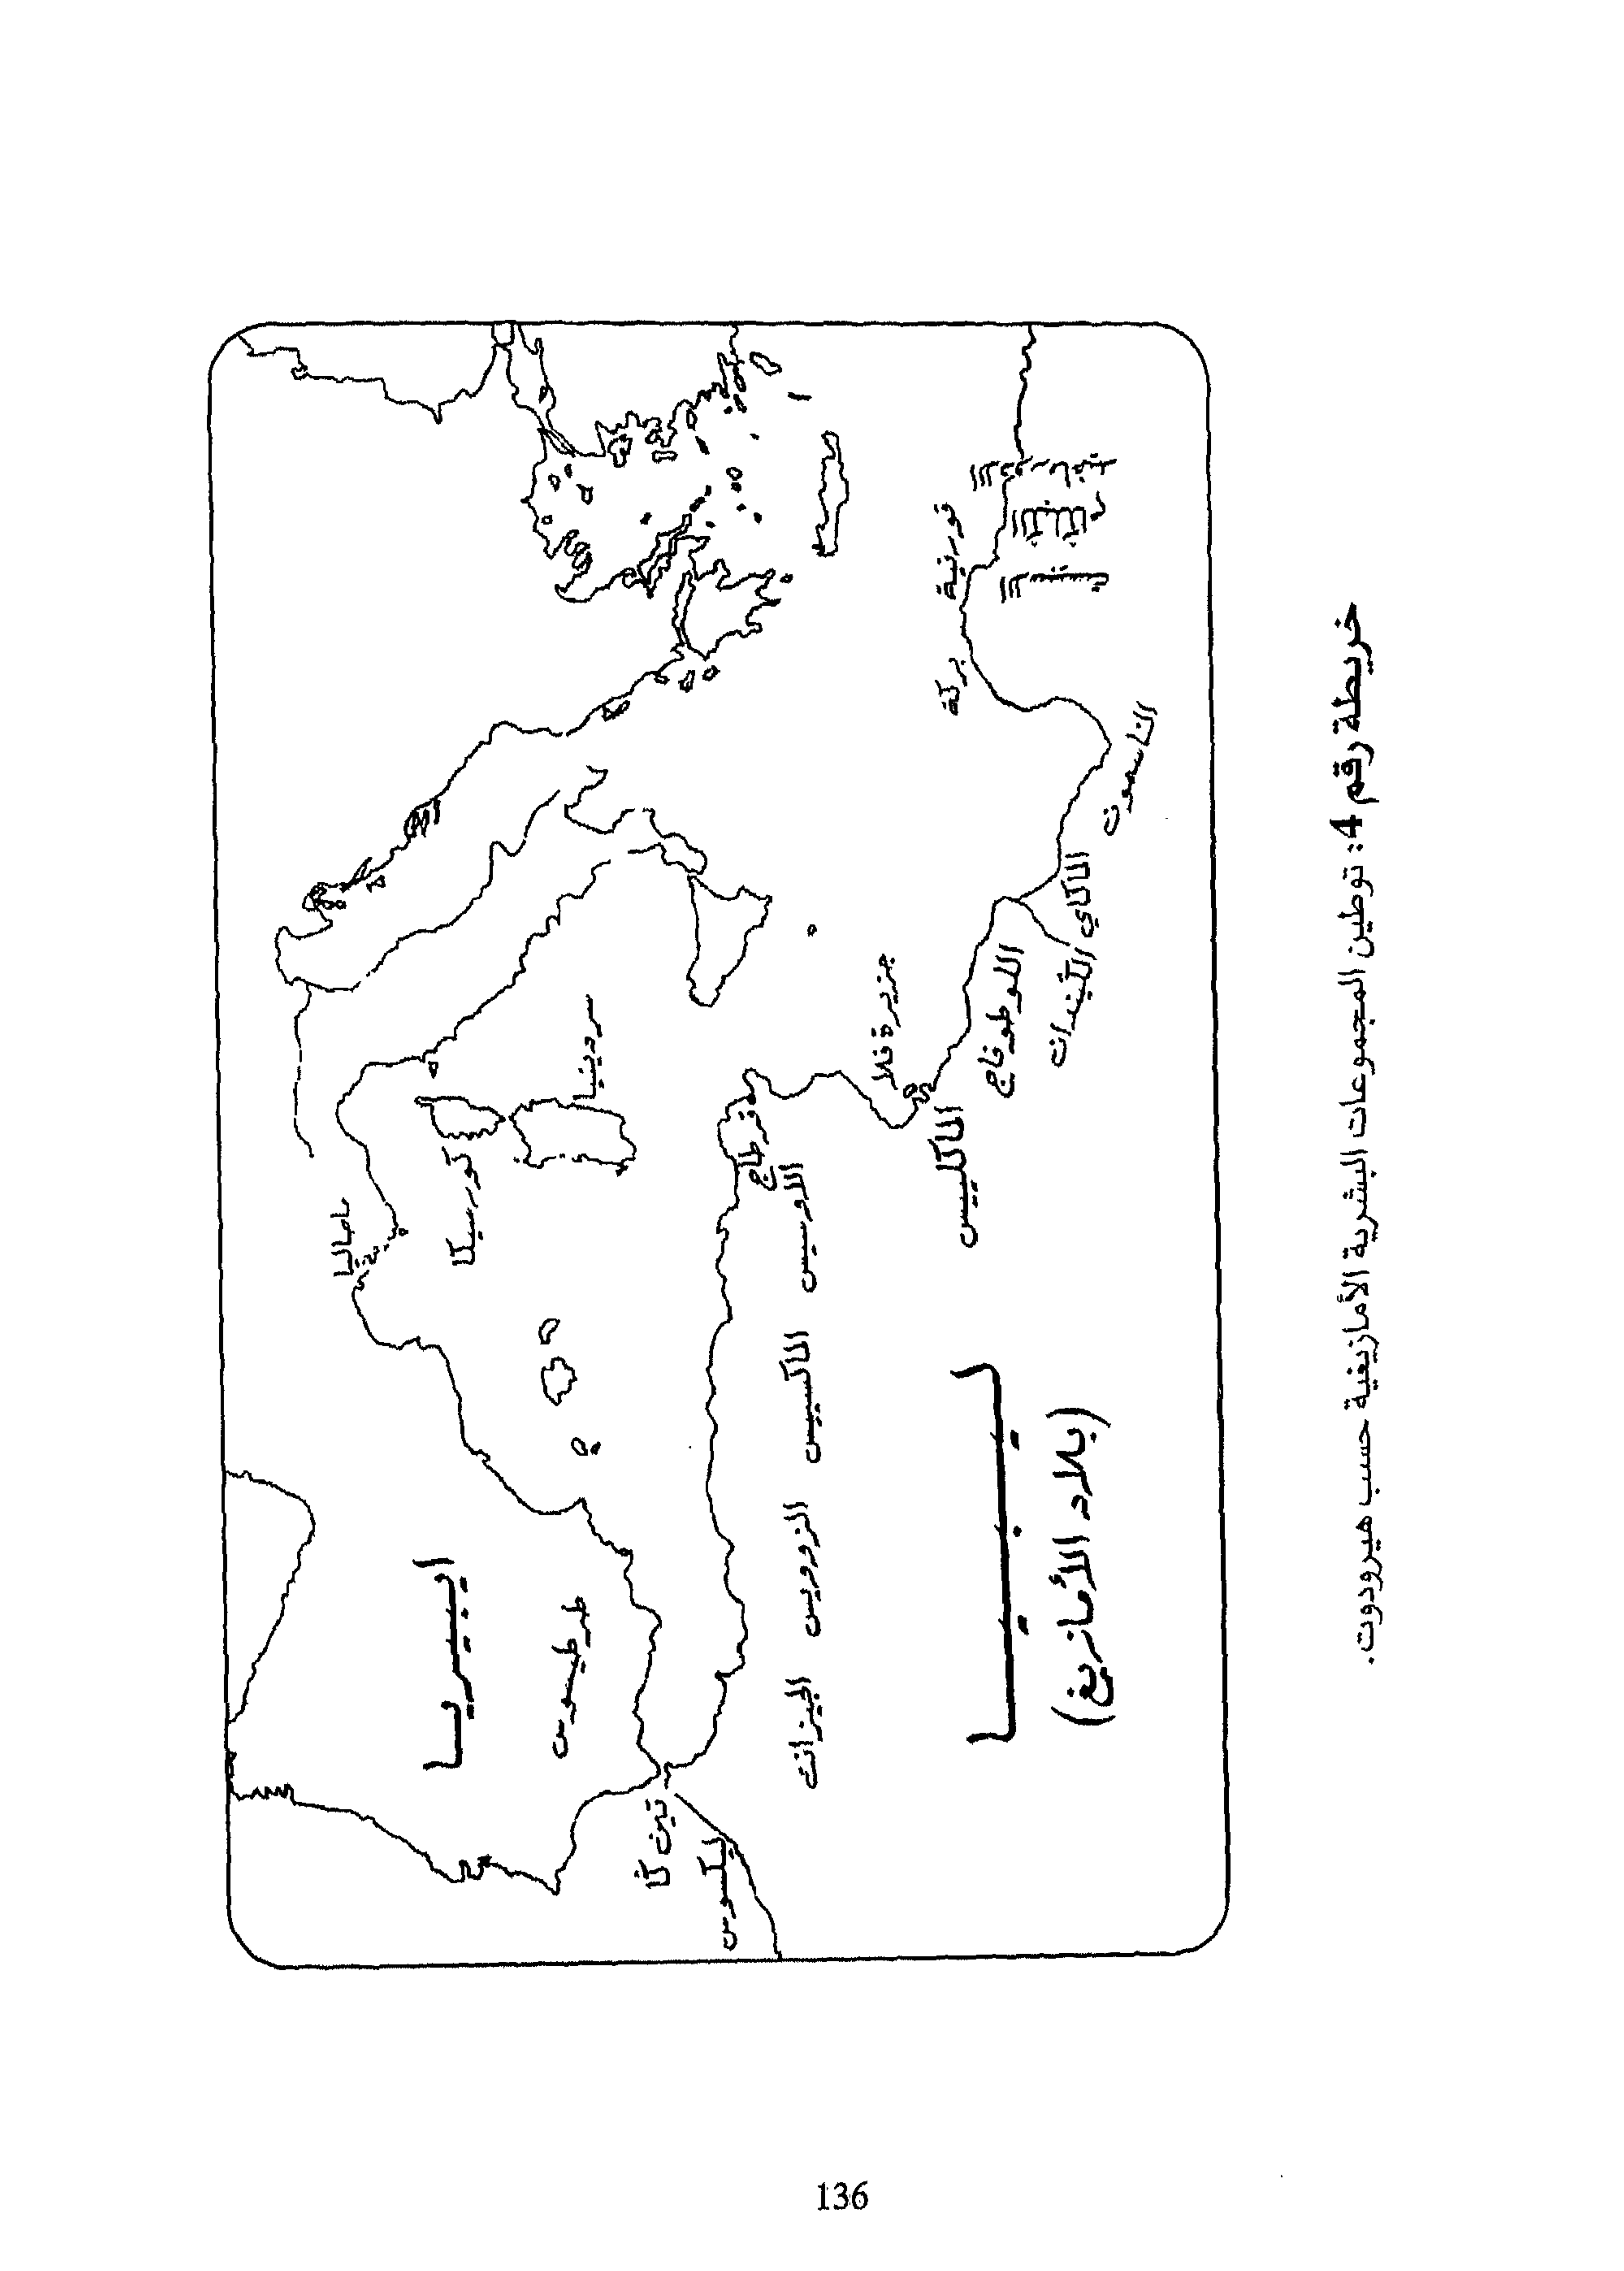 ماصاليا
إيبيريا
كورسيكا
سردينيا
طرطيسوس
تين كا
ليكسوس
قرطاج
الأوسيس
الماكسييس
الزوويس
الجيزانت
جزيرة فلا
الماكلييس
اللوطوفاج
الگيندانت
الماكاي
الناسمون
بركة
قورنية
ليبيا
(بلاد الأمازيغ)
خريطة رقم 4: توطين المجموعات البشرية الأمازيغية حسب هيرودوت.
136